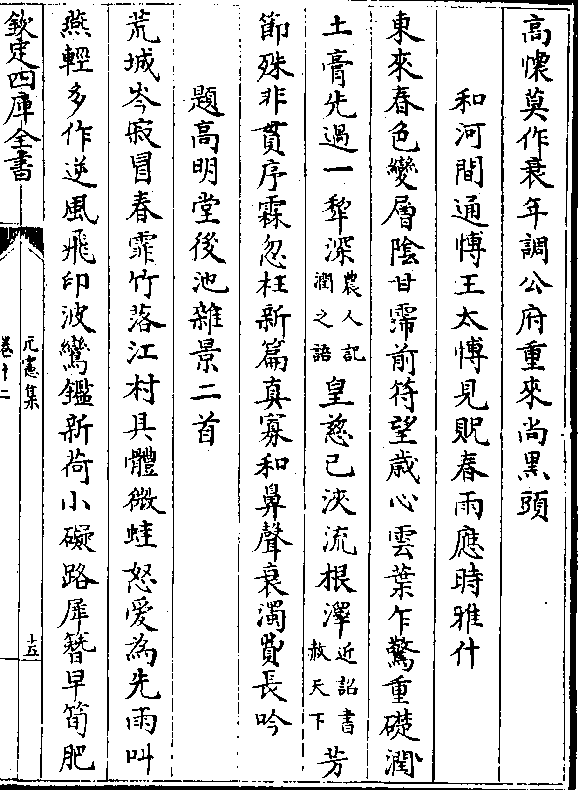 高懷莫作衰年調公府重來尚黑頭
和河間通愽王太愽見貺春雨應時雅什
東來春色變層陰甘霈前符望歳心雲葉乍驚重礎潤
土膏先過一犂深農人記潤之語皇慈已浹流根澤近詔書赦天下芳
節殊非貫序霖忽枉新篇真寡和鼻聲衰濁費長吟
題高明堂後池雜景二首
荒城岑寂冒春霏竹落江村具體微蛙怒愛為先雨叫
燕輕多作逆風飛印波鸞鑑新荷小礙路犀簪早筍肥
欽定四庫全書
元憲集
卷十二
十五